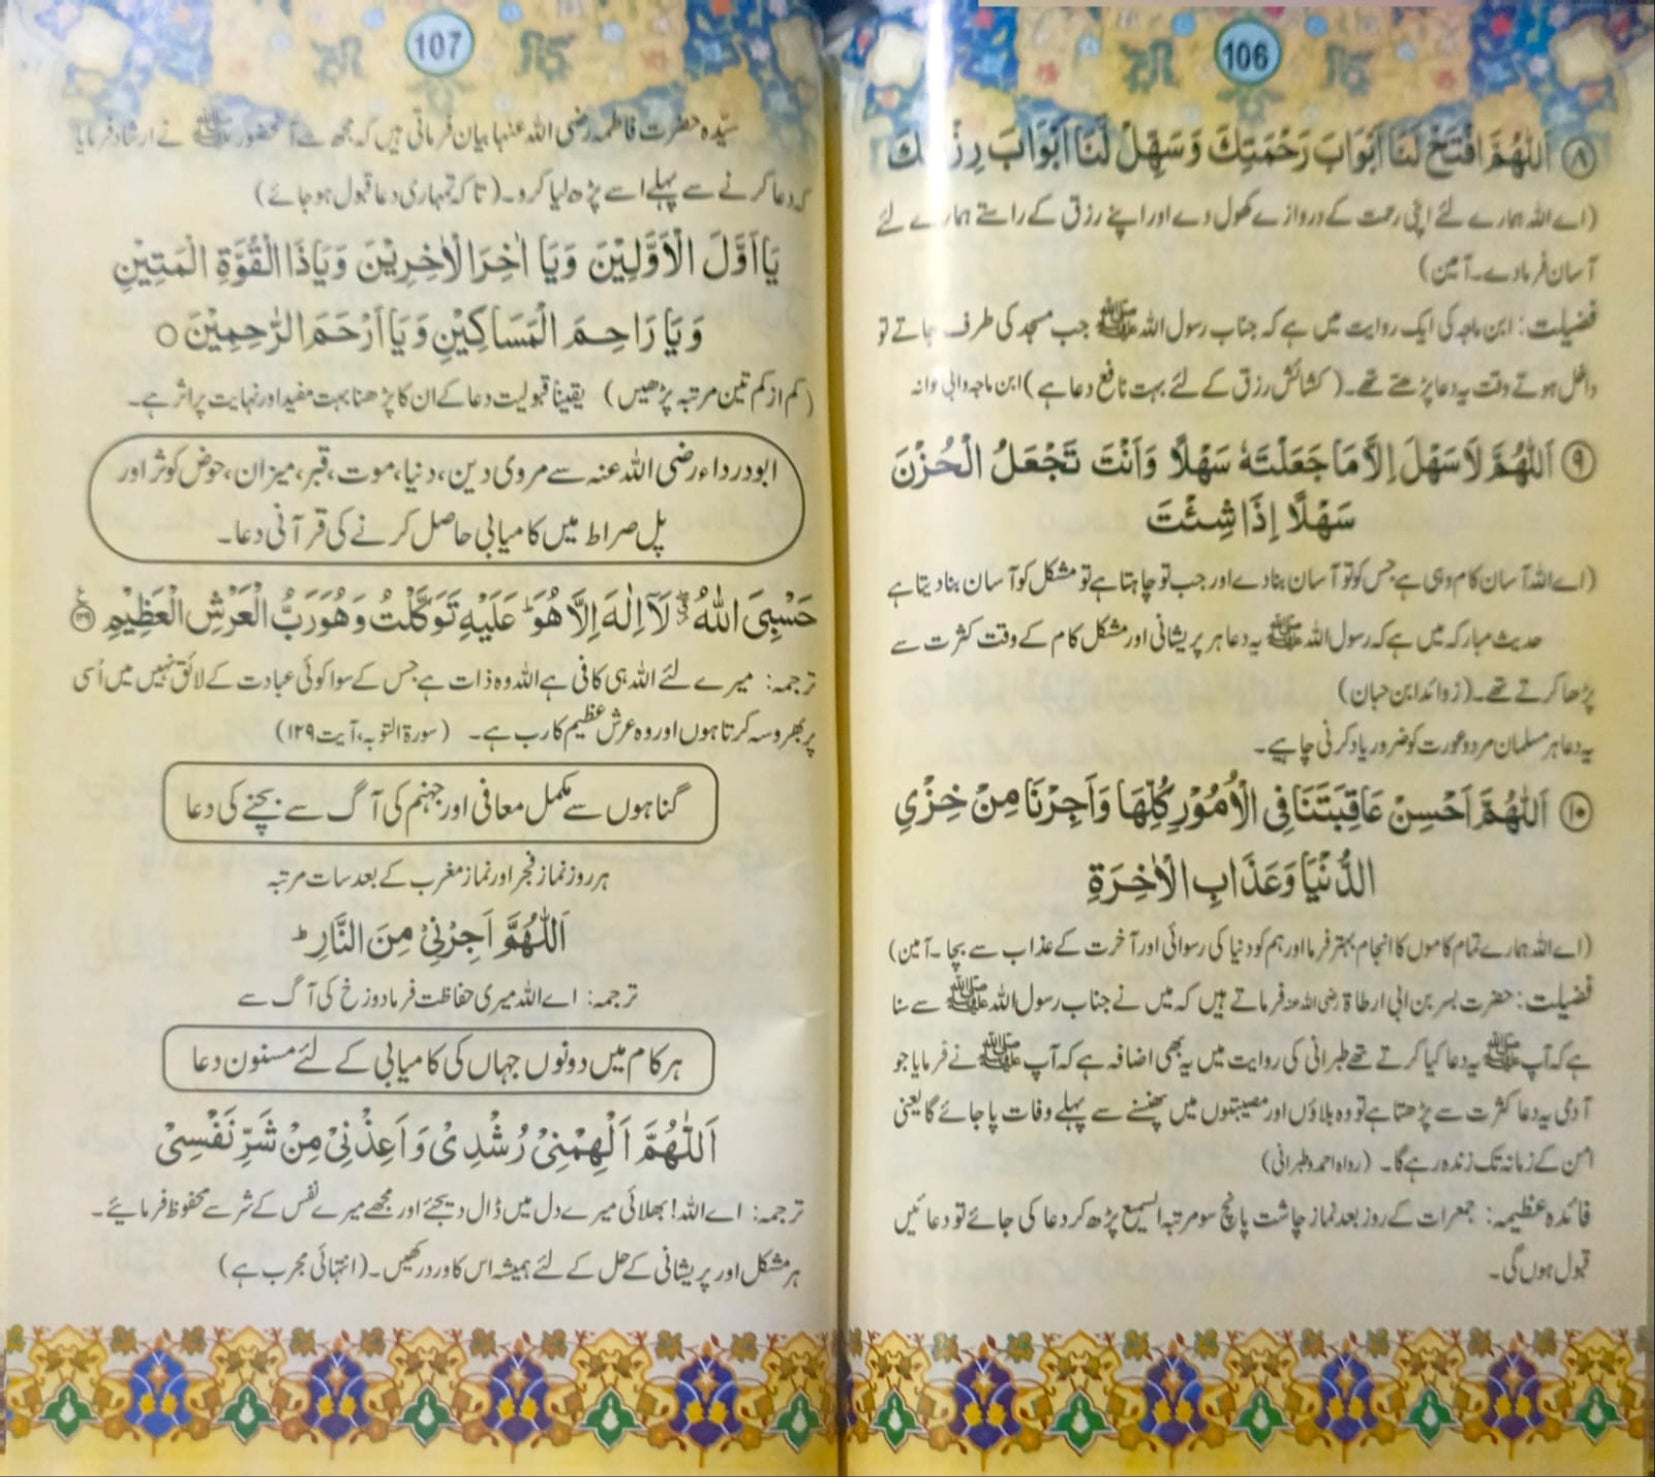 106
۸ اَللّٰهُمَّ افْتَحْ لَنَا اَبْوَابَ رَحْمَتِكَ وَسَهِّلْ لَنَا اَبْوَابَ رِزْقِكَ
(اے اللہ ہمارے لئے اپنی رحمت کے دروازے کھول دے اور اپنے رزق کے راستے ہمارے لئے
آسان فرمادے۔ آمین)
فضیلت: ابن ماجہ کی ایک روایت میں ہے کہ جناب رسول اللہ ﷺ جب مسجد کی طرف جاتے تو
داخل ہوتے وقت یہ دعا پڑھتے تھے۔ (کشائش رزق کے لئے بہت نافع دعا ہے) ابن ماجہ وابی عوانہ
۹ اَللّٰهُمَّ لَا سَهْلَ اِلَّا مَا جَعَلْتَهٗ سَهْلًا وَاَنْتَ تَجْعَلُ الْحُزْنَ
سَهْلًا اِذَا شِئْتَ
(اے اللہ آسان کام وہی ہے جس کو تو آسان بنادے اور جب تو چاہتا ہے تو مشکل کو آسان بنادیتا ہے
حدیث مبارکہ میں ہے کہ رسول اللہ ﷺ یہ دعا ہر پریشانی اور مشکل کام کے وقت کثرت سے
پڑھا کرتے تھے۔ (زوائد ابن حبان)
یہ دعا ہر مسلمان مرد و عورت کو ضرور یاد کرنی چاہیے۔
۱۰ اَللّٰهُمَّ اَحْسِنْ عَاقِبَتَنَا فِی الْاُمُوْرِ كُلِّهَا وَاَجِرْنَا مِنْ خِزْیِ
الدُّنْيَا وَعَذَابِ الْاٰخِرَةِ
(اے اللہ ہمارے تمام کاموں کا انجام بہتر فرما اور ہم کو دنیا کی رسوائی اور آخرت کے عذاب سے بچا۔ آمین)
فضیلت: حضرت بسر بن ابی ارطاۃ رضی اللہ عنہ فرماتے ہیں کہ میں نے جناب رسول اللہ ﷺ سے سنا
ہے کہ آپ ﷺ یہ دعا کیا کرتے تھے طبرانی کی روایت میں یہ بھی اضافہ ہے کہ آپ ﷺ نے فرمایا جو
آدمی یہ دعا کثرت سے پڑھتا ہے تو وہ بلاؤں اور مصیبتوں میں پھنسنے سے پہلے وفات پا جائے گا یعنی
امن کے زمانہ تک زندہ رہے گا۔ (رواہ احمد وطبرانی)
فائدہ عظیمہ: جمعرات کے روز بعد نماز چاشت پانچ سو مرتبہ السمیع پڑھ کر دعا کی جائے تو دعائیں
قبول ہوں گی۔
107
سیّدہ حضرت فاطمہ رضی اللہ عنہا بیان فرماتی ہیں کہ مجھ سے آنحضور ﷺ نے ارشاد فرمایا
کہ دعا کرنے سے پہلے اسے پڑھ لیا کرو۔ (تاکہ تمہاری دعا قبول ہو جائے)
يَا اَوَّلَ الْاَوَّلِيْنَ وَيَا اٰخِرَ الْاٰخِرِيْنَ وَيَا ذَا الْقُوَّةِ الْمَتِيْنِ
وَيَا رَاحِمَ الْمَسَاكِيْنِ وَيَا اَرْحَمَ الرّٰحِمِيْنَ ○
(کم از کم تین مرتبہ پڑھیں) یقیناً قبولیت دعا کے ان کا پڑھنا بہت مفید اور نہایت پر اثر ہے۔
ابودرداء رضی اللہ عنہ سے مروی دین، دنیا، موت، قبر، میزان، حوض کوثر اور
پل صراط میں کامیابی حاصل کرنے کی قرآنی دعا۔
حَسْبِیَ اللّٰهُ ۖ لَاۤ اِلٰهَ اِلَّا هُوَ ؕ عَلَيْهِ تَوَكَّلْتُ وَهُوَ رَبُّ الْعَرْشِ الْعَظِيْمِ ۝۱۲۹
ترجمہ: میرے لئے اللہ ہی کافی ہے اللہ وہ ذات ہے جس کے سوا کوئی عبادت کے لائق نہیں میں اُسی
پر بھروسہ کرتا ہوں اور وہ عرش عظیم کا رب ہے۔ (سورۃ التوبہ، آیت ۱۲۹)
گناہوں سے مکمل معافی اور جہنم کی آگ سے بچنے کی دعا
ہر روز نماز فجر اور نماز مغرب کے بعد سات مرتبہ
اَللّٰهُمَّ اَجِرْنِیْ مِنَ النَّارِ ؕ
ترجمہ: اے اللہ میری حفاظت فرما دوزخ کی آگ سے
ہر کام میں دونوں جہاں کی کامیابی کے لئے مسنون دعا
اَللّٰهُمَّ اَلْهِمْنِیْ رُشْدِیْ وَاَعِذْنِیْ مِنْ شَرِّ نَفْسِیْ
ترجمہ: اے اللہ! بھلائی میرے دل میں ڈال دیجئے اور مجھے میرے نفس کے شر سے محفوظ فرمائیے۔
ہر مشکل اور پریشانی کے حل کے لئے ہمیشہ اس کا ورد رکھیں۔ (انتہائی مجرب ہے)